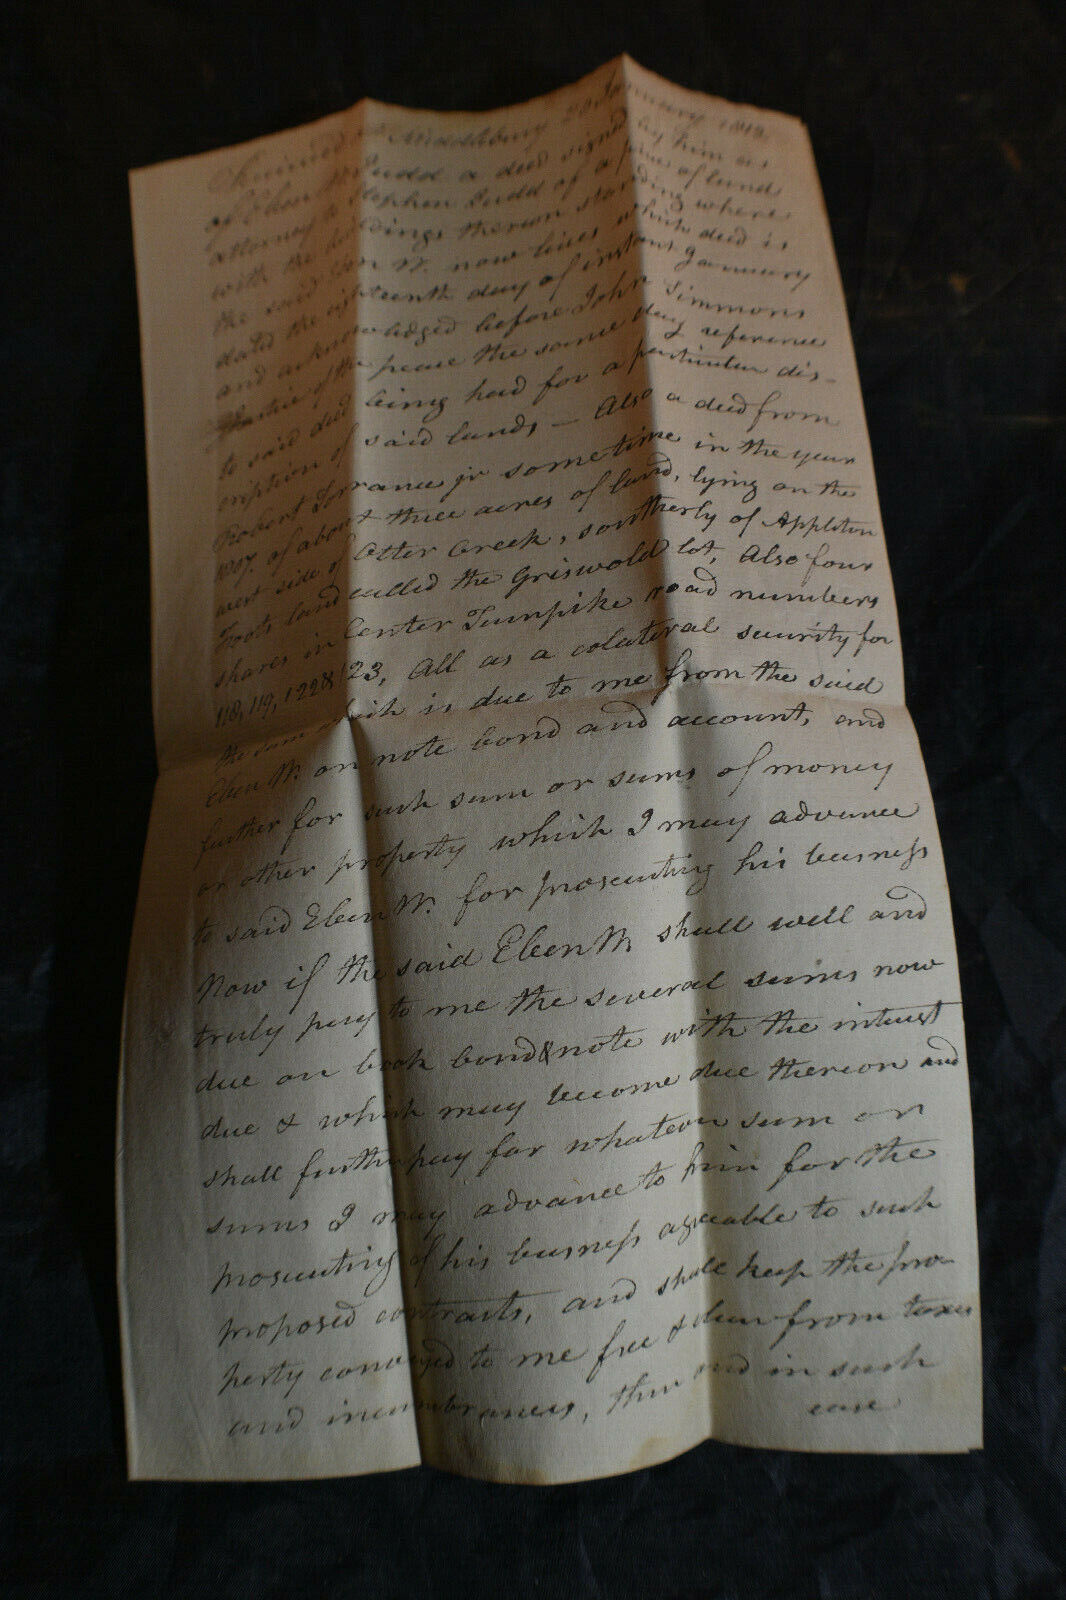 Received at Middlebury 20 January 1812
of Eben W. Judd a deed signed by him as
attorney to Stephen Judd of a piece of land
with the buildings thereon standing where
the said Eben W. now lives which deed is
dated the eighteenth day of instant January
and acknowledged before John Simmons
Justice of the peace the same day reference
to said deed being had for a perticular dis-
cription of said lands — Also a deed from
Robert Torrance jr sometime in the year
1807. of about three acres of land, lying on the
west side of Otter Creek, southerly of Appleton
Foots land called the Griswold lot, Also four
shares in Center Turnpike road numbers
118, 119, 122 & 123, All as a colateral security for
the sum which is due to me from the said
Eben W. on note bond and account, and
further for such sum or sums of money
or other property which I may advance
to said Eben W. for prosecuting his busness
Now if the said Eben W. shall well and
truly pay to me the several sums now
due on book bond & note with the interest
due & which may become due thereon and
shall further pay for whatever sum or
sums I may advance to him for the
prosecuting of his busness agreeable to such
proposed contracts, and shall keep the pro-
perty conveyed to me free & clear from taxes
and incumbrances, then and in such
case